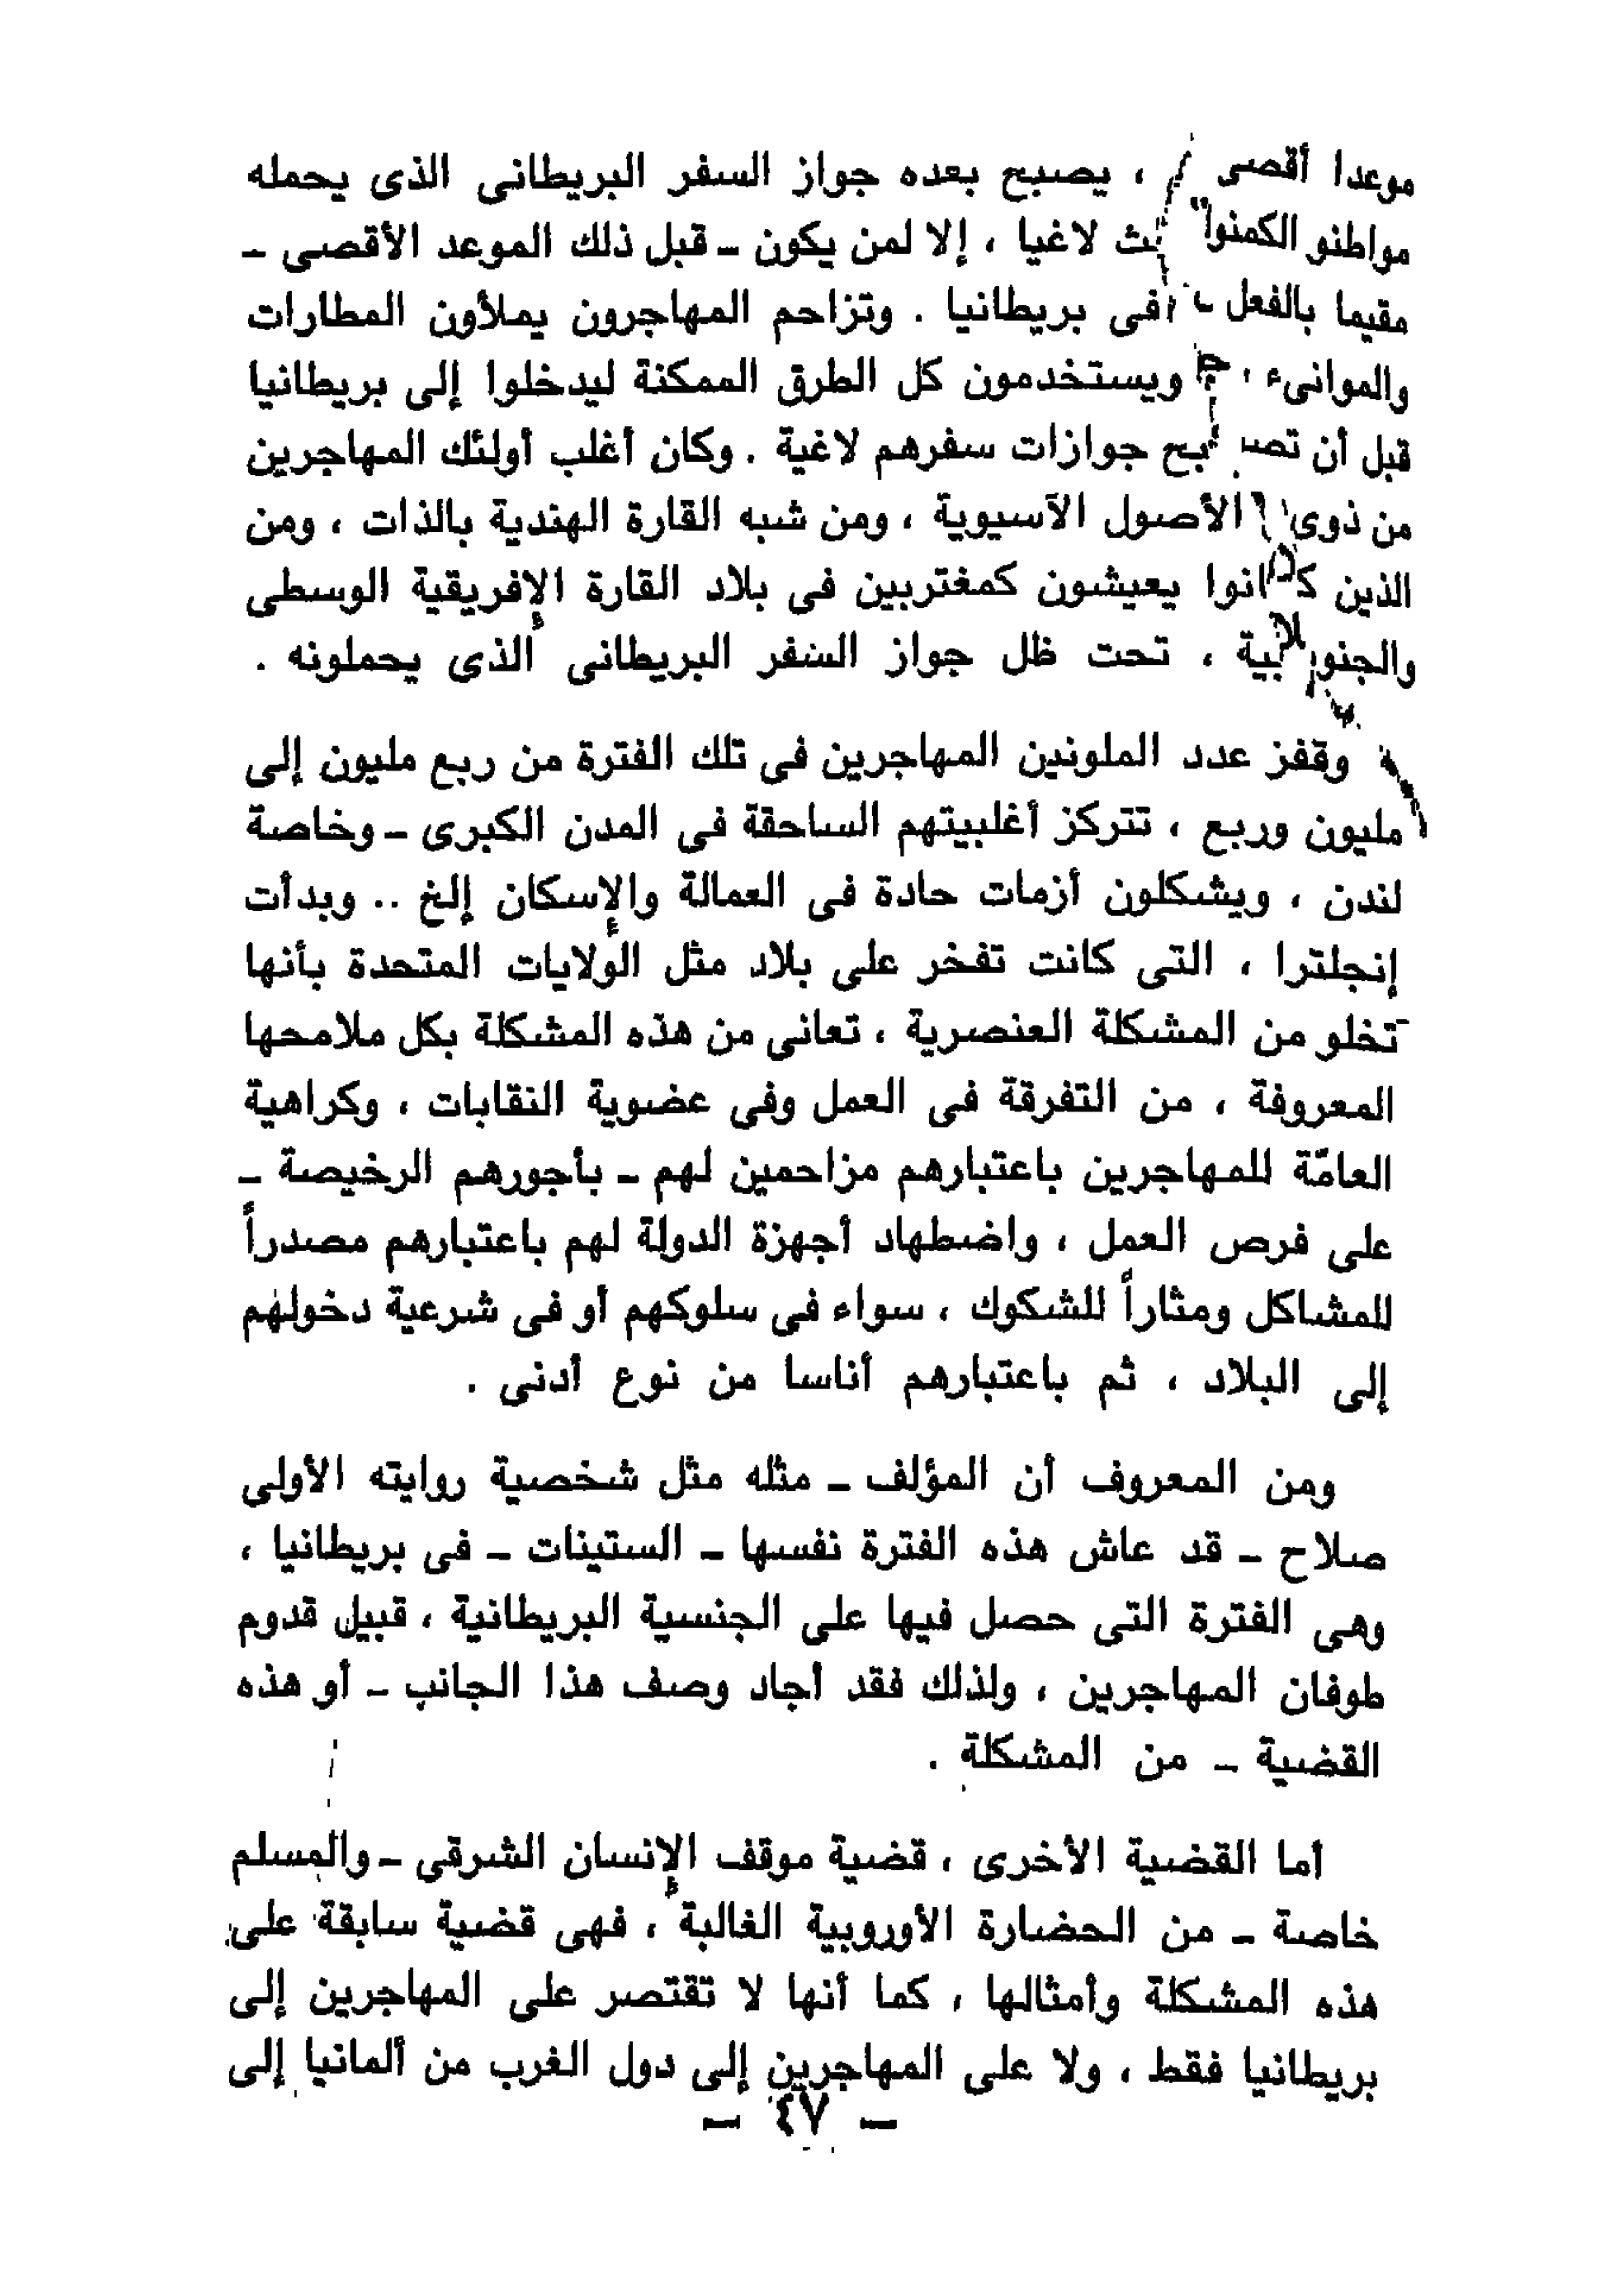 موعدا أقصى ، يصبح بعده جواز السفر البريطانى الذى يحمله
مواطنو الكمنولث لاغيا ، إلا لمن يكون – قبل ذلك الموعد الأقصى –
مقيما بالفعل فى بريطانيا . وتزاحم المهاجرون يملأون المطارات
والموانىء ، ويستخدمون كل الطرق الممكنة ليدخلوا إلى بريطانيا
قبل أن تصبح جوازات سفرهم لاغية . وكان أغلب أولئك المهاجرين
من ذوى الأصول الآسيوية ، ومن شبه القارة الهندية بالذات ، ومن
الذين كانوا يعيشون كمغتربين فى بلاد القارة الإفريقية الوسطى
والجنوبية ، تحت ظل جواز السفر البريطانى الذى يحملونه .
وقفز عدد الملونين المهاجرين فى تلك الفترة من ربع مليون إلى
مليون وربع ، تتركز أغلبيتهم الساحقة فى المدن الكبرى – وخاصة
لندن ، ويشكلون أزمات حادة فى العمالة والإسكان إلخ .. وبدأت
إنجلترا ، التى كانت تفخر على بلاد مثل الولايات المتحدة بأنها
تخلو من المشكلة العنصرية ، تعانى من هذه المشكلة بكل ملامحها
المعروفة ، من التفرقة فى العمل وفى عضوية النقابات ، وكراهية
العامّة للمهاجرين باعتبارهم مزاحمين لهم – بأجورهم الرخيصة –
على فرص العمل ، واضطهاد أجهزة الدولة لهم باعتبارهم مصدراً
للمشاكل ومثاراً للشكوك ، سواء فى سلوكهم أو فى شرعية دخولهم
إلى البلاد ، ثم باعتبارهم أناسا من نوع أدنى .
ومن المعروف أن المؤلف – مثله مثل شخصية روايته الأولى
صلاح – قد عاش هذه الفترة نفسها – الستينات – فى بريطانيا ،
وهى الفترة التى حصل فيها على الجنسية البريطانية ، قبيل قدوم
طوفان المهاجرين ، ولذلك فقد أجاد وصف هذا الجانب – أو هذه
القضية – من المشكلة .
أما القضية الأخرى ، قضية موقف الإنسان الشرقى – والمسلم
خاصة – من الحضارة الأوروبية الغالبة ، فهى قضية سابقة على
هذه المشكلة وأمثالها ، كما أنها لا تقتصر على المهاجرين إلى
بريطانيا فقط ، ولا على المهاجرين إلى دول الغرب من ألمانيا إلى
– ٤٧ –